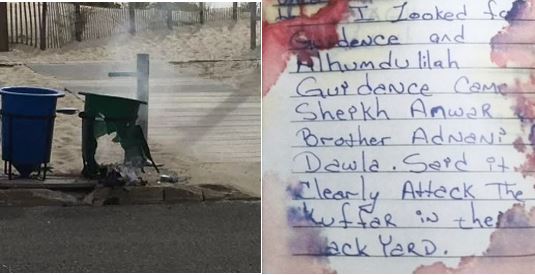 I Looked fo
Guidence and
Alhumdulilah
Guidance Came
Sheikh Anwar
Brother Adnani
Dawla. Said it
Clearly Attack The
Kuffar in the
ack YARD.